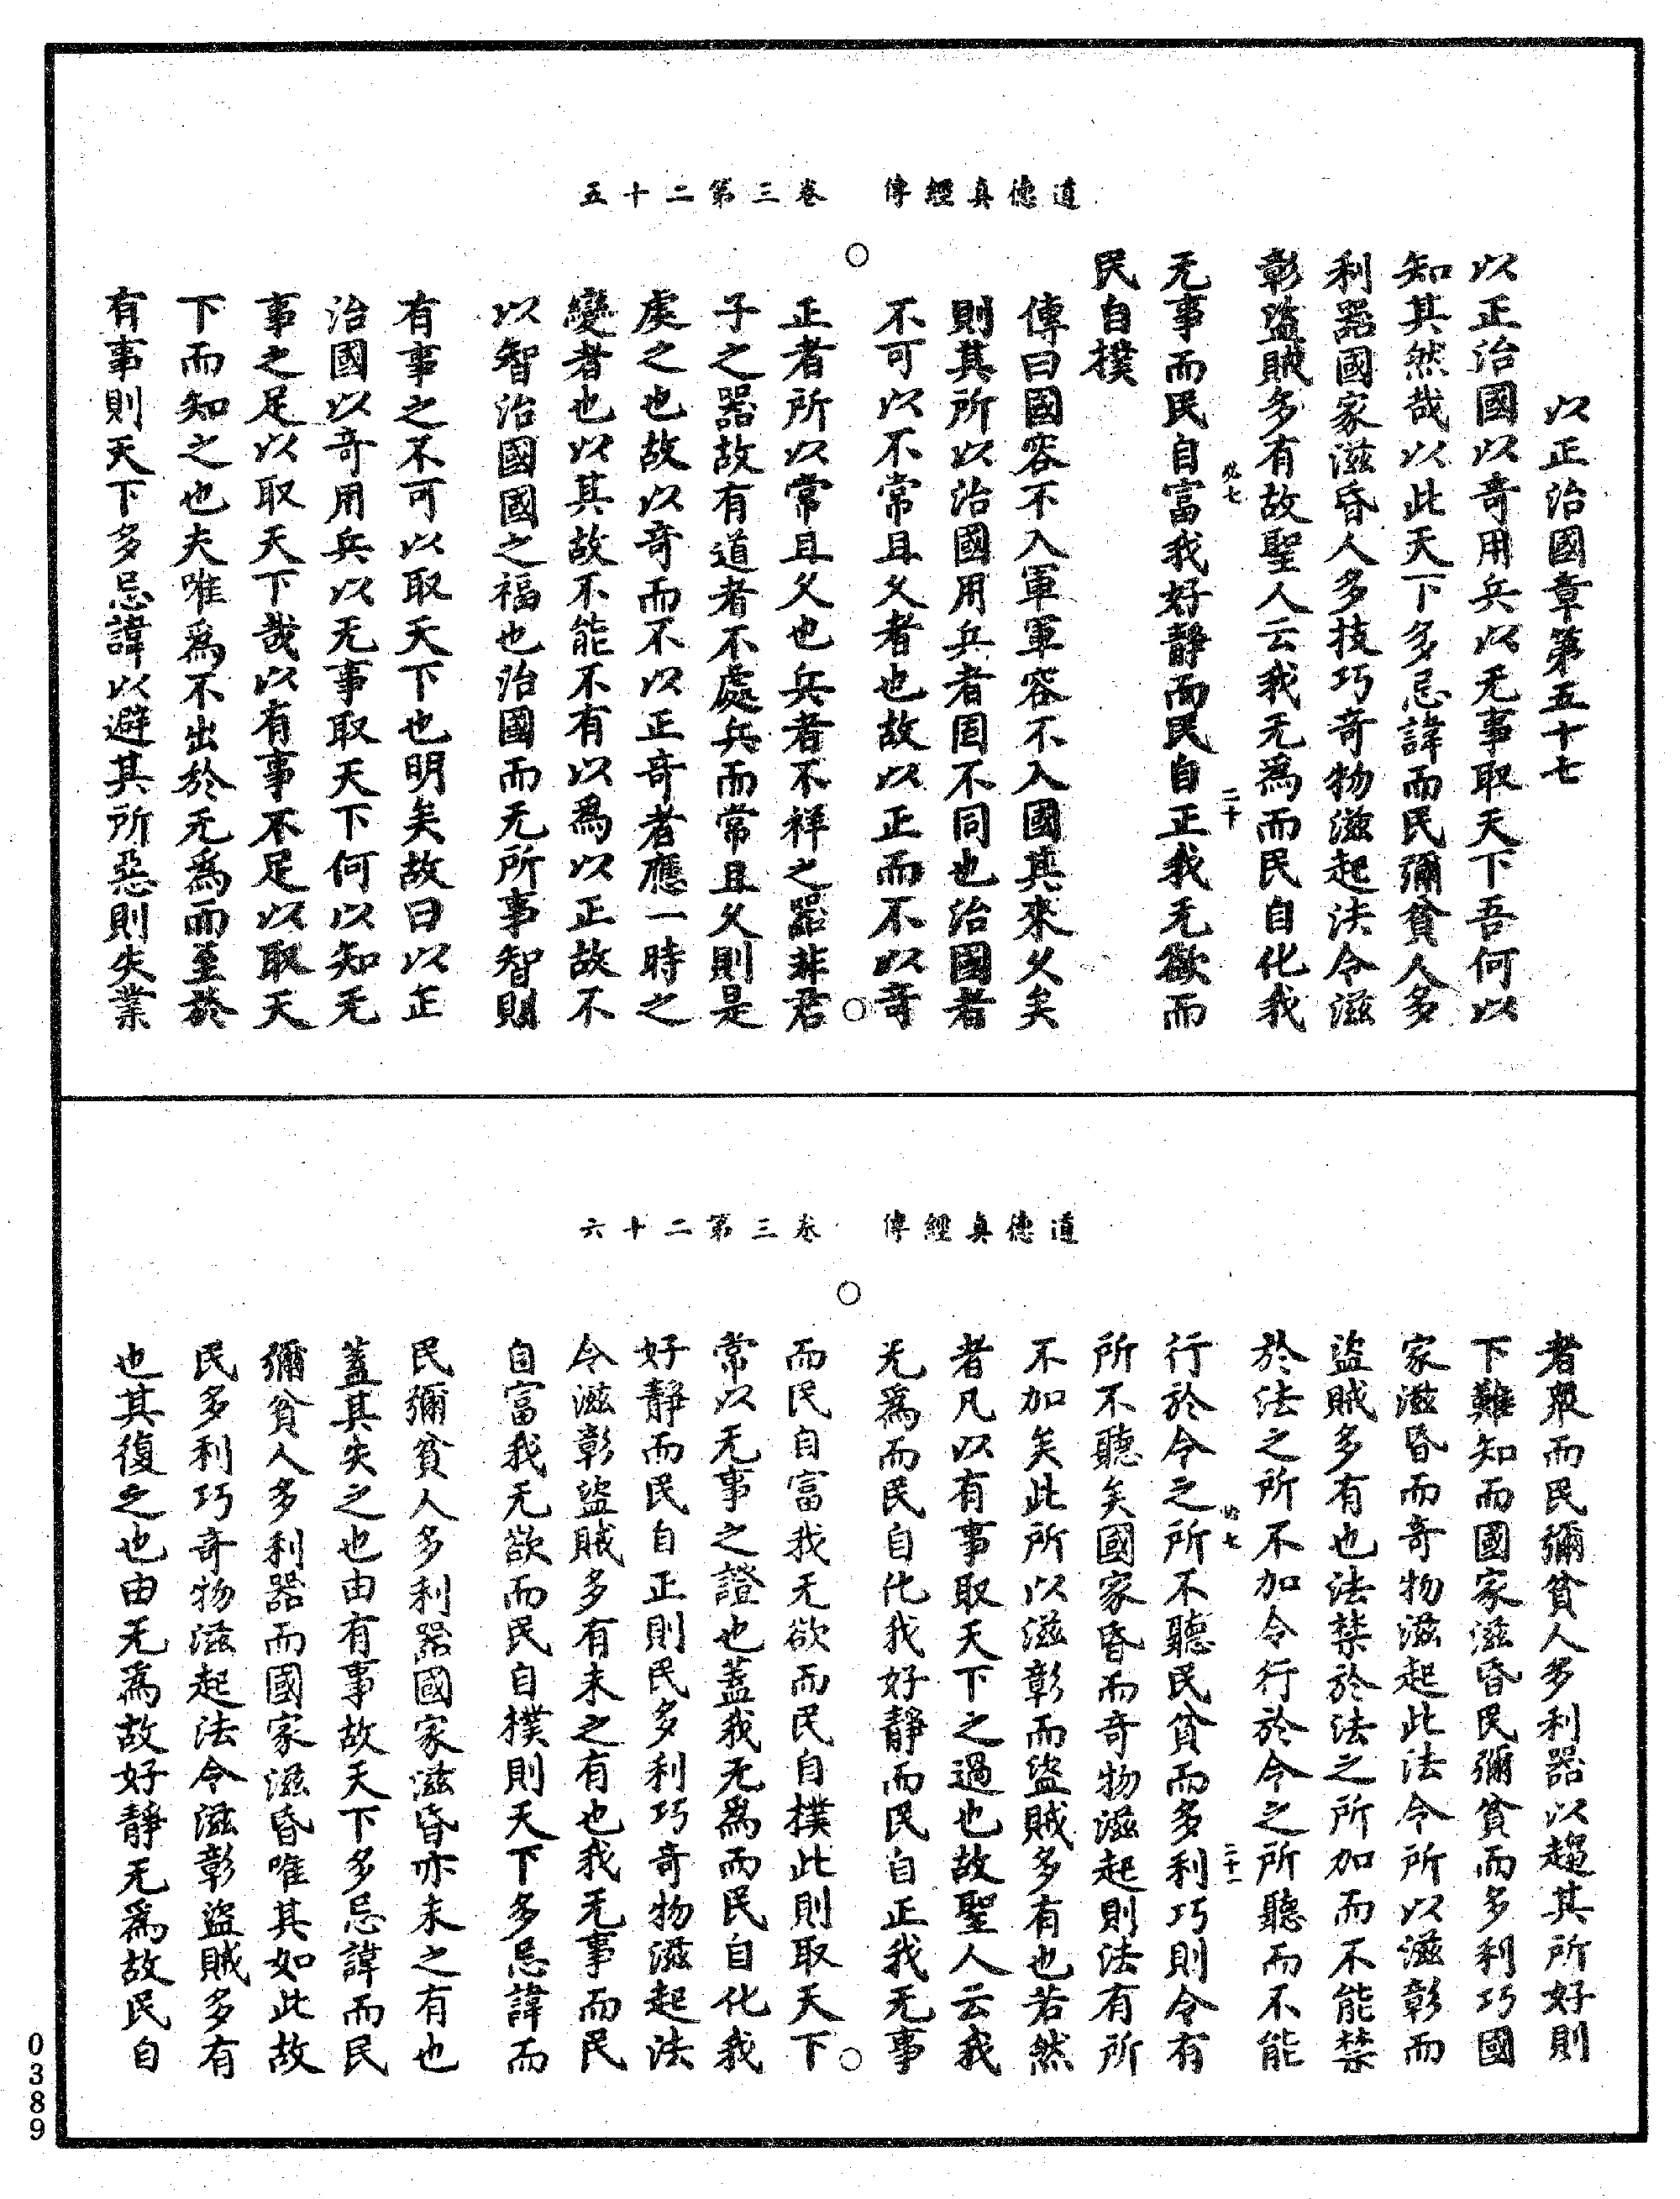 道德真經傳　卷三第二十五
以正治國章第五十七
以正治國以奇用兵以无事取天下吾何以
知其然哉以此天下多忌諱而民彌貧人多
利器國家滋昏人多技巧奇物滋起法令滋
彰盜賊多有故聖人云我无為而民自化我
无事而民自富我好靜而民自正我无欲而
民自樸
傳曰國容不入軍軍容不入國其來久矣
則其所以治國用兵者固不同也治國者
不可以不常且久者也故以正而不以奇
正者所以常且久也兵者不祥之器非君
子之器故有道者不處兵而常且久則是
處之也故以奇而不以正奇者應一時之
變者也以其故不能不有以為以正故不
以智治國國之福也治國而无所事智則
有事之不可以取天下也明矣故曰以正
治國以奇用兵以无事取天下何以知无
事之足以取天下哉以有事不足以取天
下而知之也夫唯為不出於无為而至於
有事則天下多忌諱以避其所惡則失業
道德真經傳　卷三第二十六
者眾而民彌貧人多利器以趨其所好則
下難知而國家滋昏民彌貧而多利巧國
家滋昏而奇物滋起此法令所以滋彰而
盜賊多有也法禁於法之所加而不能禁
於法之所不加令行於令之所聽而不能
行於令之所不聽民貧而多利巧則令有
所不聽矣國家昏而奇物滋起則法有所
不加矣此所以滋彰而盜賊多有也若然
者凡以有事取天下之過也故聖人云我
无為而民自化我好靜而民自正我无事
而民自富我无欲而民自樸此則取天下
常以无事之證也蓋我无為而民自化我
好靜而民自正則民多利巧奇物滋起法
令滋彰盜賊多有未之有也我无事而民
自富我无欲而民自樸則天下多忌諱而
民彌貧人多利器國家滋昏亦未之有也
蓋其失之也由有事故天下多忌諱而民
彌貧人多利器而國家滋昏唯其如此故
民多利巧奇物滋起法令滋彰盜賊多有
也其復之也由无為故好靜无為故民自
0389